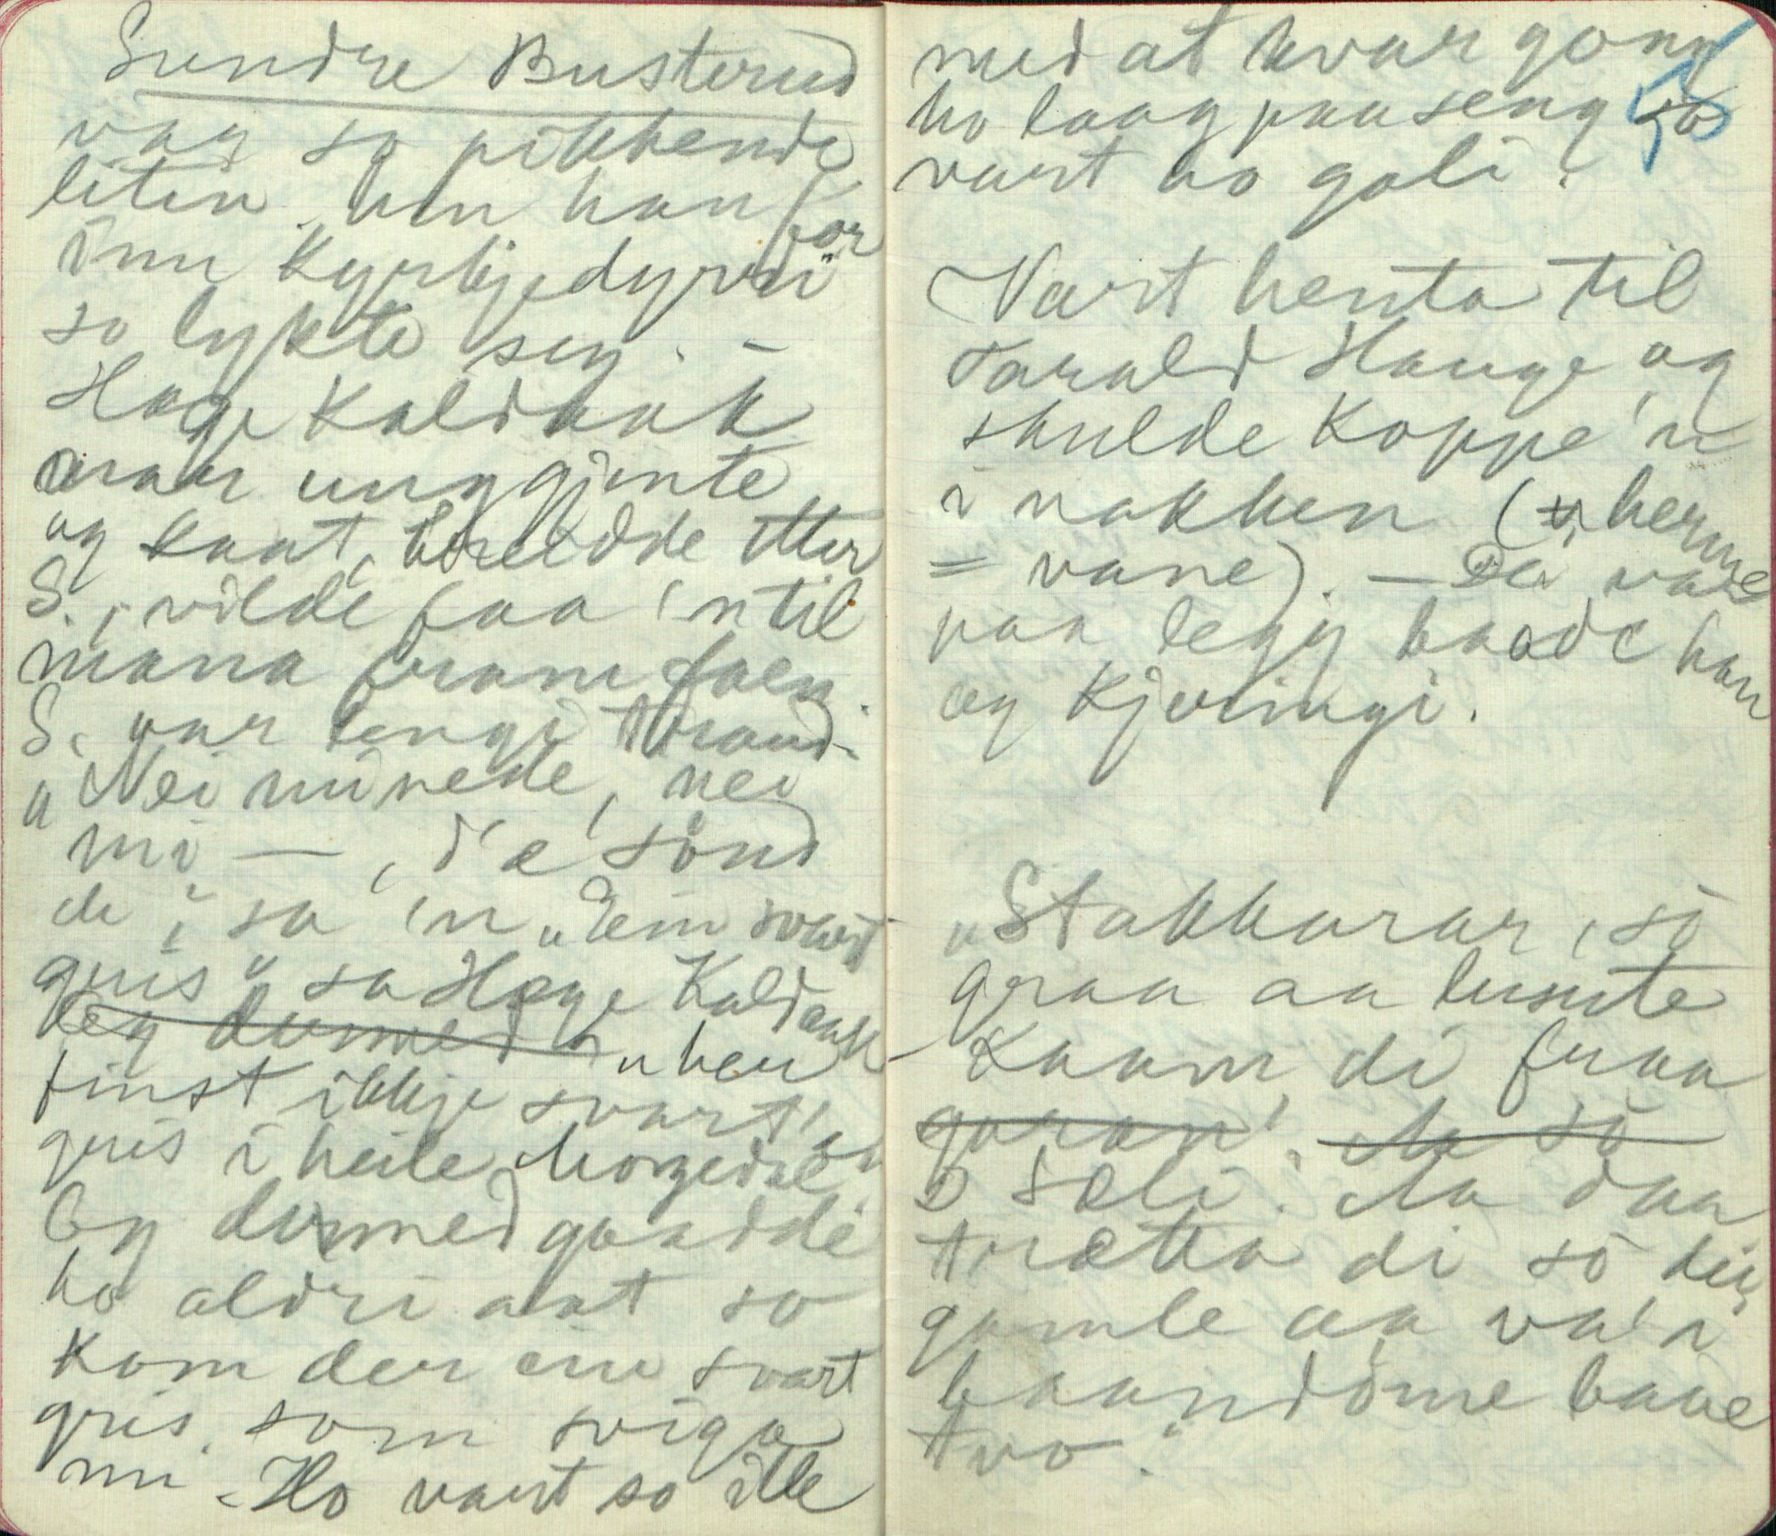 Sundre Busterud
var so pikkende
liten. Um han for
inn Kyrkjedyri"
so lykte seg. -
Hage Kaldaak
var unggjente
og kaat, heldde etter
S., vilde faa 'n til
mana fram faen.
S. var lengi traaud.
"Nei mi rede, nei
mi —, d'e' sönd
de, sa 'n. "Ein svart
gris" sa Hage Kaldaak
Og dermed "her
finst ikkje svart'e
gris i heile Morgedal.
Og dermed gaadde
ho aldri aat so
kom der ein svart
gris som sviga
ni. Ho vart so ille
med at kvar gong
ho laag paa seng so
vart ho goli.
55
Vart henta til
Tarald Hauge og
skulde koppe 'n
i nakken (herme
= vane). — Da var
paa legg baade han
og Kjeringi.
"Stakkarar, so
graa aa lusute
kaam di fraa
garan'. Aa so
o sæli. Aa daa
trætta di so dei
gamle aa va' i
baandöme baae
tvo.